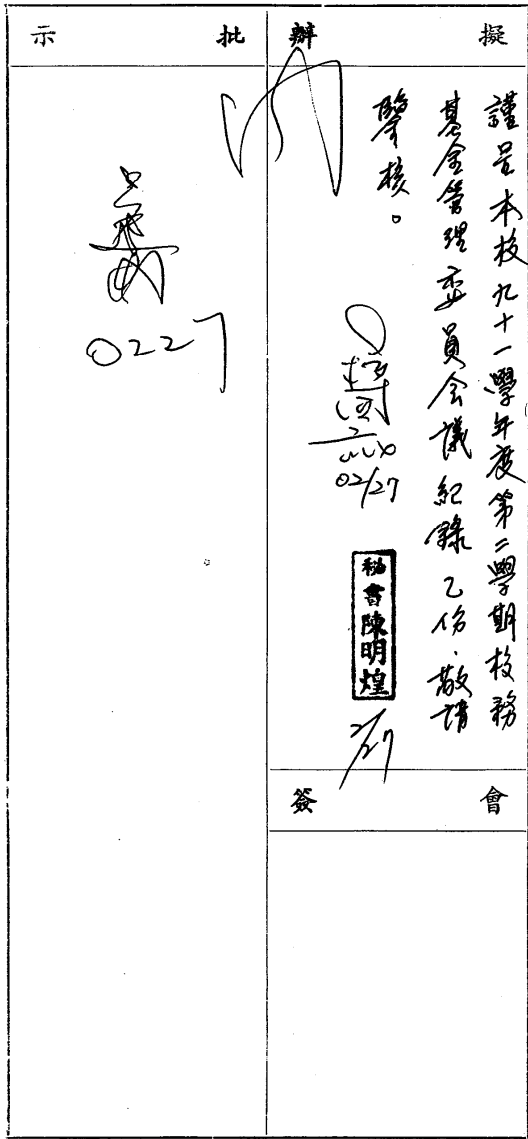 擬辦
謹呈本校九十一學年度第二學期校務
基金管理委員會議紀錄乙份，敬請
鑒核。
02/27
秘書陳明煌
2/27
會簽
批示
0227